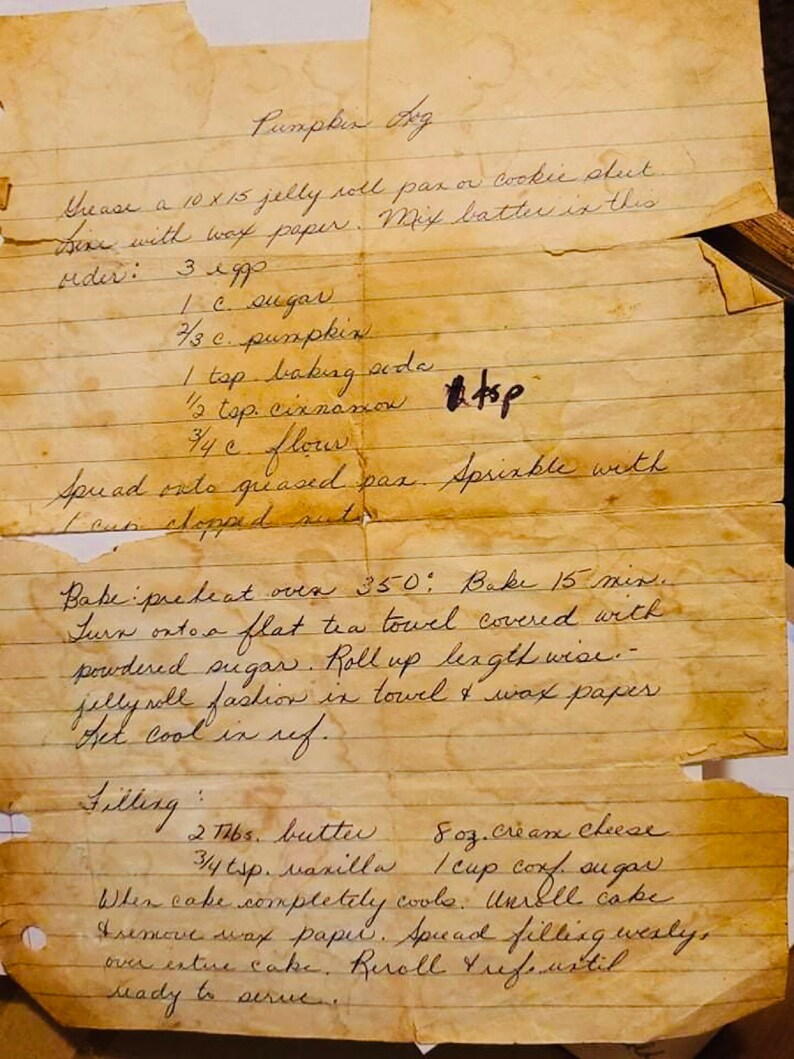 Pumpkin Log
Grease a 10 x 15 jelly roll pan or cookie sheet.
Line with wax paper. Mix batter in this
order: 3 eggs
1 c. sugar
2/3 c. pumpkin
1 tsp. baking soda
1/2 tsp. cinnamon tsp
3/4 c. flour
Spread onto greased pan. Sprinkle with
1 cup chopped nuts
Bake: preheat oven 350°. Bake 15 min.
Turn onto a flat tea towel covered with
powdered sugar. Roll up lengthwise -
jelly roll fashion in towel & wax paper
Let cool in ref.
Filling:
2 Tlbs. butter 8 oz. cream cheese
3/4 tsp. vanilla 1 cup conf. sugar
When cake completely cools. Unroll cake
& remove wax paper. Spread filling
over entire cake. Reroll & ref. until
ready to serve.